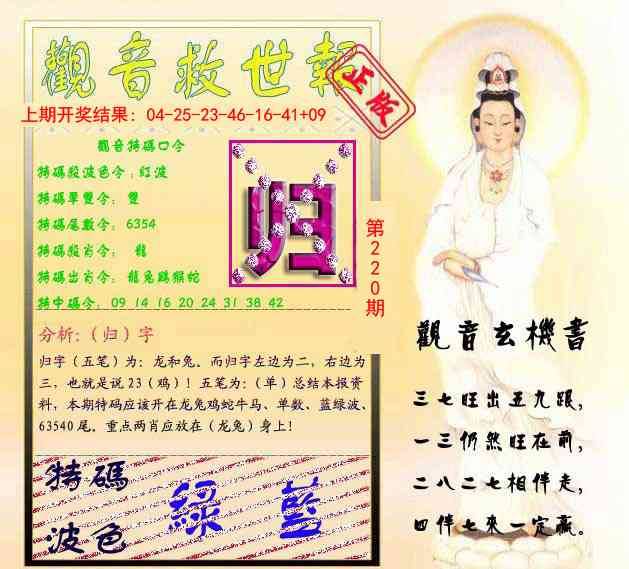 觀音救世報
正版
上期开奖结果：04-25-23-46-16-41+09
觀音特碼口令
特碼殺波色令：红波
特碼單雙令： 雙
特碼尾數令： 6354
特碼殺肖令： 龍
特碼出肖令： 龍兔鷄猴蛇
特中碼令： 09 14 16 20 24 31 38 42
归
第220期
分析:（归）字
归字（五笔）为：龙和兔。而归字左边为二，右边为
三，也就是说 23（鸡）！五笔为：（单）总结本报资
料，本期特码应该开在龙兔鸡蛇牛马、单数、蓝绿波、
63540 尾。重点两肖应放在（龙兔）身上！
特碼
波色
綠 藍
觀音玄機書
三七旺出五九跟，
一三仍然旺在前，
二八二七相伴走，
四伴七來一定贏。